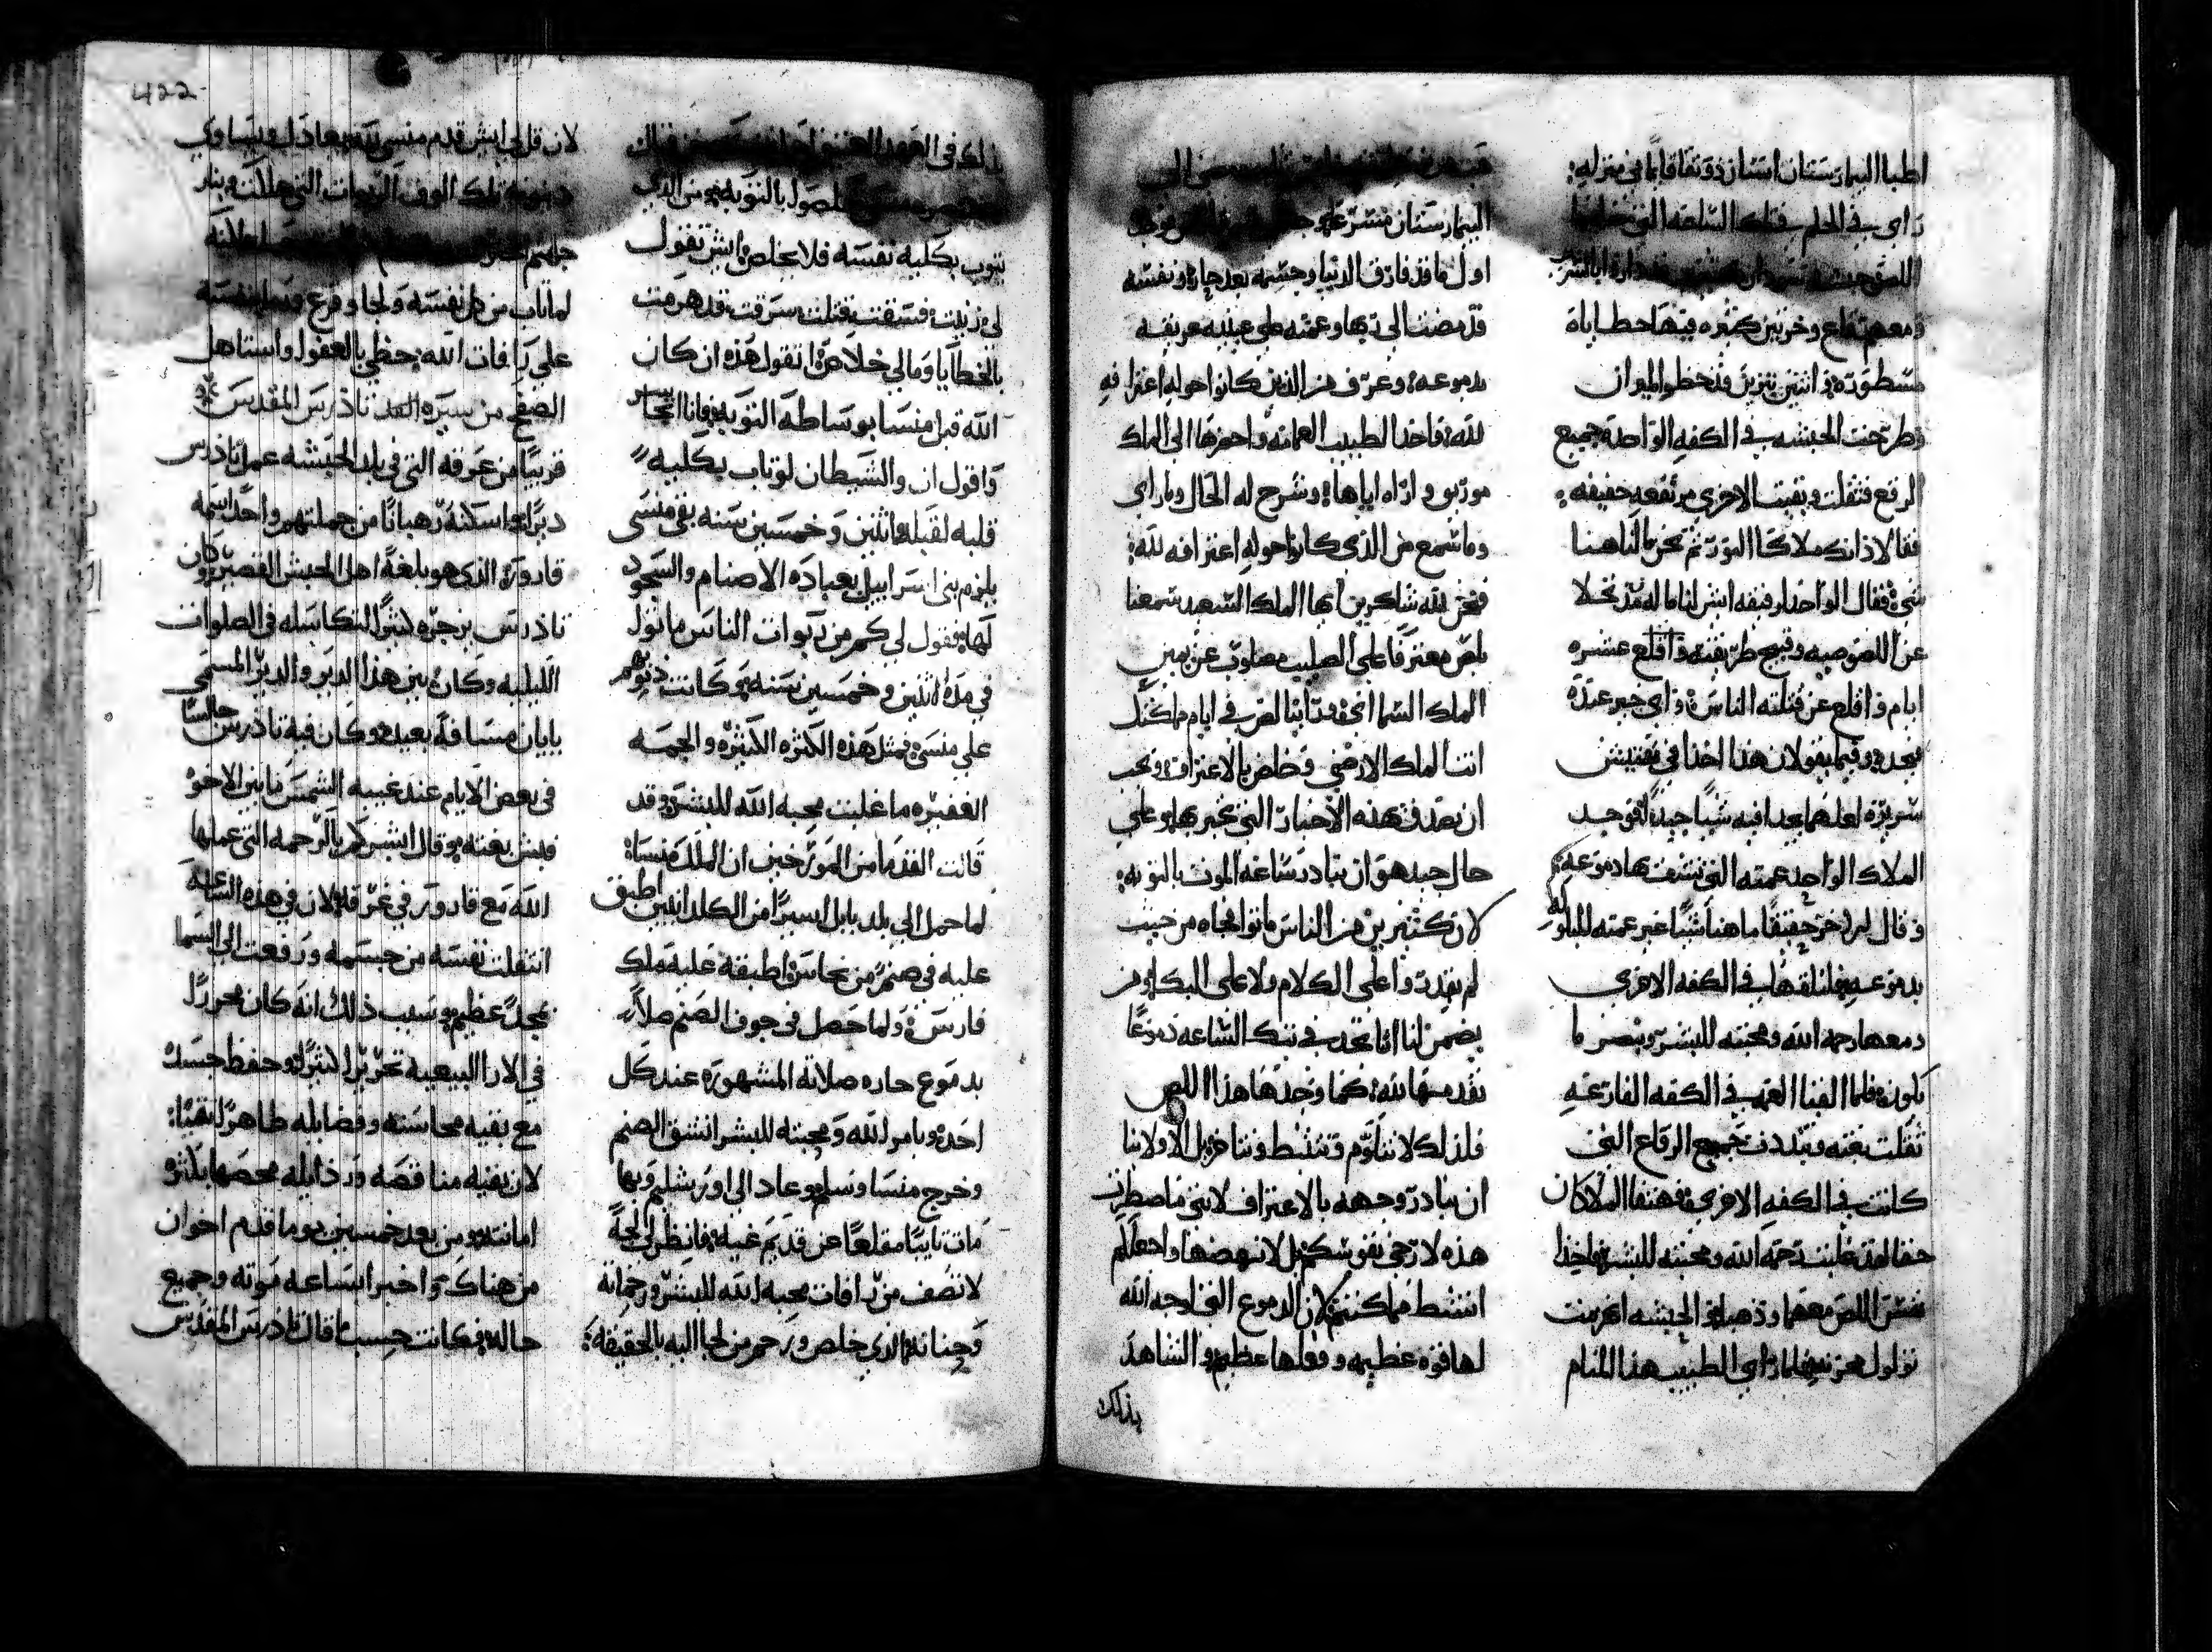 اطبا البيمارستان انسان ذو تقا قايما في منزله:
راى في الحلم في تلك الساعه التي
اللص حبشه
ومعهم رقاع وخزين كثيره فيها خطاياه
مسطوره وانتين نيرين قد خطوا الميزان
وطرحت الحبشه في الكفه الواحده جميع
الرقع فثقلت وبقيت الاخرى مرتفعه خفيفه:
فقالا ذانك ملاكا النور ثم نحن مالنا هنا
شي فقال الواحد لرفيقه ايش لنا ماله مذ تخلا
عن اللصوصيه وقبيح طريقته واقلع عشره
ايام واقلع عن قتلته الناس واى خير عنده
نجده وفيما يقولان هذا اخذا في تفتيش
سريره لعلهما يجدا فيه شيا جيدا فوجد
الملاك الواحد عمته التي نشف بها دموعه
وقال للاخر حقيقا ماهنا شيا غير عمته المبلوله
بدموعه فلنلقها في الكفه الاخرى
ومعها رحمه الله ومحبته للبشر وننصر ما
يكون فلما القيا العمه في الكفه الفارغه
ثقلت بغته وتبددت جميع الرقاع التي
كانت في الكفه الاخرى فهتفا الملاكان
حقا لقد غلبت رحمه الله ومحبته للبشر واخذا
نفس اللص معهما وذهبا والحبشه انهزمت
تولول بحزن فلما راى الطبيب هذا المنام
البيمارستان
اول ما قد فارق الدنيا وجسمه بعد حار ونفسه
قد مضت الى ربها وعمته على عينيه غريقه
بدموعه وعرف من الذين كانوا حوله اعترافه
لله فاخذ الطبيب العمامه واحضرها الى الملك
موريق واراه اياها وشرح له الحال وما راى
وما سمع من الذي كانوا حوله اعترافه لله:
فنحن لله شاكرين ايها الملك السعيد سمعنا
بلص معترفا على الصليب مصلوب عن يمين
الملك السماى وراينا لص في ايام مملكتك
انت الملك الارضي وخلص بالاعتراف ويجب
ان تصدق هذه الاخبار التي نخبر بها وعلى
حال جيد هو ان نبادر ساعه الموت بالتوبه:
لان كثيرين من الناس ماتوا فجاه من حيث
لم يقدروا على الكلام ولا على البكا ومن
يضمن لنا اننا نجد في تلك الساعه دموعا
نقدمها لله كما وجدها هذا اللص
فلذلك لا نتلوم ونتثبط ونتاخر بل الاولا بنا
ان نبادر وجهه بالاعتراف لانني ما اضطرت
هذه لارخي نفوسكم بل لانهضها واجعلكم
انشط مما كنتم لان الدموع التي لوجه الله
لها قوه عظيمه وفعلها عظيم والشاهد
بذلك
بذلك في العهد العتيق
يتوب بكليه نفسه فلا يخلص ايش تقول
لي زنيت فسقت قتلت سرقت قد هرمت
بالخطايا ومالي خلاص اتقول هذه ان كان
الله قبل منسا بوساطه التوبه
واقول ان والشيطان لو تاب بكليه
قلبه لقبله اثنين وخمسين سنه بقي منسى
يلزم بني اسراييل بعباده الاصنام والسجود
لها فقول لي كم من ربوات الناس ماتوا
في مده اثنين وخمسين سنه وكانت ذنوبهم
على منسى فمثل هذه الكثره الكثيره والجمه
الغفيره ما غلبت محبه الله للبشر وقد
قالت القدما من المورخين ان الملك منسا:
لما حمل الى بلد بابل اسيرا من الكلدانيين اطبق
عليه في صنم من نحاس اطبقه عليه ملك
فارس ولما حصل في جوف الصنم صلا
بدموع حاره صلاته المشهوره عند كل
احد وبامر الله ومحبته للبشر انشق الصنم
وخرج منسا وسلم وعاد الى اورشليم وبها
مات تايبا مقلعا عن قديم غيه فانظر الى لجه
لا تصف من رافات محبه الله للبشر ورحمانه
وحنانه الذي خلص ورحم من لجا اليه بالحقيقه:
422
لان قل لي ايش قدم منسى لله يعادل ويساوي
ذنوبه تلك الوف الربوات التي هلكت
لما تاب من كل نفسه ولجا وفزع
على رافات الله حظي بالعفو واستاهل
الصفح من سيره القديس تاذرس المقدس
قريبا من غرفه التي في بلد الحبشه عمل تاذرس
ديرا واسكنه رهبانا من جملتهم واحد اسمه
قارور الذي هو بلغه اهل الحبش القصير وكان
تاذرس يزجره كثيرا لتكاسله في الصلوات
الليليه وكان بين هذا الدير والدير المسمى
بايان مسافه بعيده وكان فيه تاذرس جالسا
في بعض الايام عند غيبه الشمس ما بين الاخوه
فبش بغته وقال ابشركم بالرحمه التي عملها
الله مع قارور في غرفه لان في هذه الساعه
انتقلت نفسه من جسمه ورفعت الى السما
بمجد عظيم وسبب ذلك انه كان محررا
في الارا البيعيه تحريرا كثيرا وحفظ جسده
مع بقيه محاسنه وفضايله طاهرا نقيا:
لان بقيه مناقصه ورذايله محصها بكثره
امانته ومن بعد خمسين يوما قدم اخوان
من هناك واخبرا بساعه موته وجميع
حاله فكانت حسب ما قال تاذرس المقدس